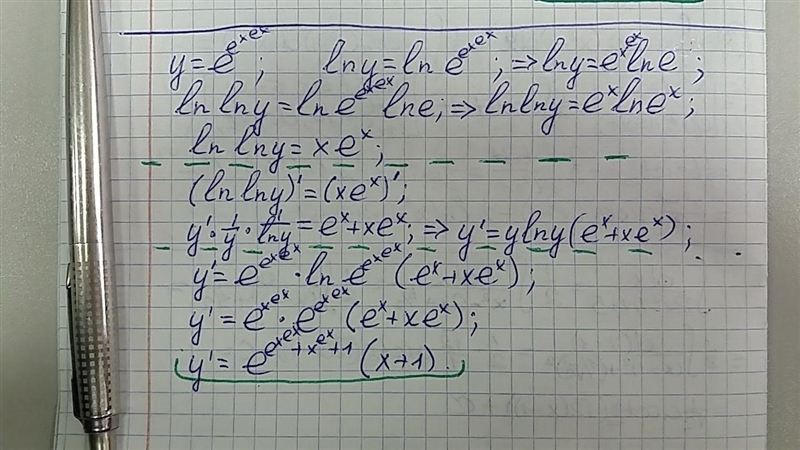 y = e^{e^{x e^x}}; ln y = ln e^{e^{x e^x}}; ⇒ ln y = e^{x e^x} ln e;
ln ln y = ln e^{x e^x} ln e; ⇒ ln ln y = e^x ln e^x;
ln ln y = x e^x;
(ln ln y)' = (x e^x)';
y' · 1/y · 1/ln y = e^x + x e^x; ⇒ y' = y ln y (e^x + x e^x);
y' = e^{e^{x e^x}} · ln e^{e^{x e^x}} (e^x + x e^x);
y' = e^{e^{x e^x}} · e^{x e^x} (e^x + x e^x);
y' = e^{e^{x e^x} + x e^x + 1} (x + 1)